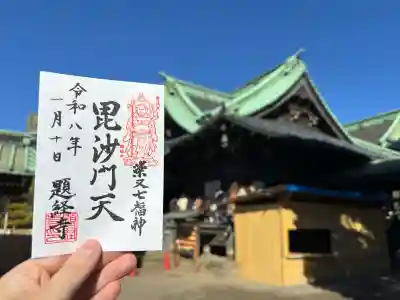 柴又七福神
毘沙門天
令和八年
一月十日
題経寺